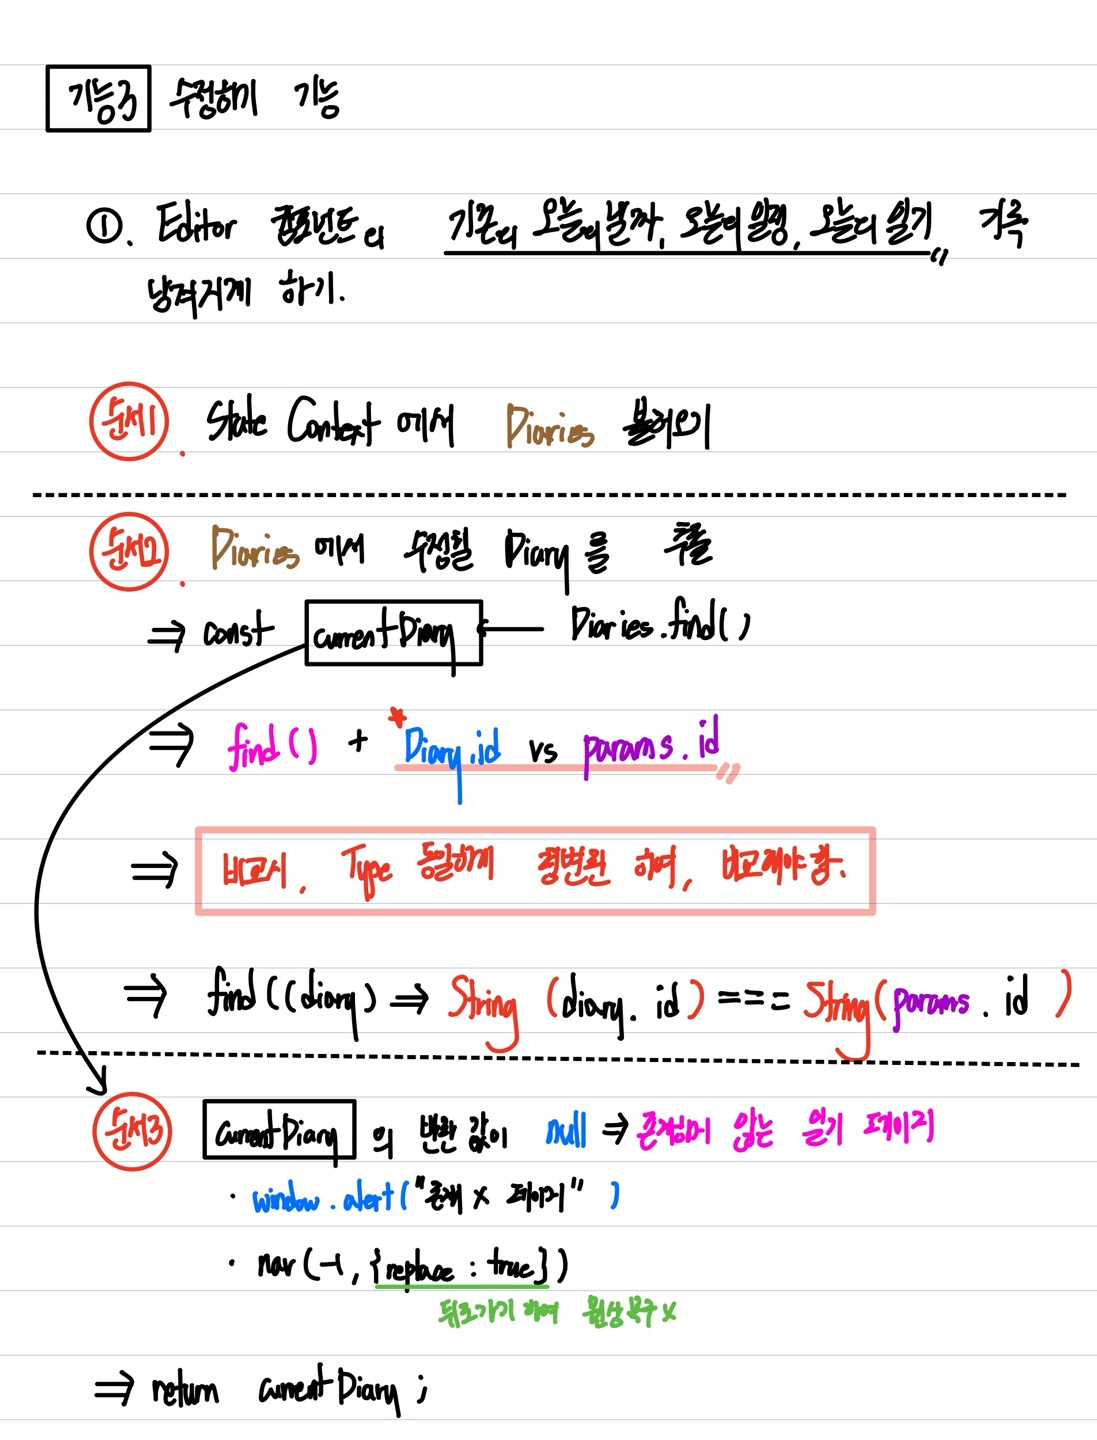 기능3 수정하기 기능
①. Editor 컴포넌트의 기존의 오늘의날짜, 오늘의일정, 오늘의 일기 기록
남겨지게 하기.
순서1. State Context 에서 Diaries 불러오기
순서2. Diaries 에서 수정될 Diary 를 추출
⇒ const currentDiary ← Diaries.find()
⇒ find() + *Diary.id vs params.id
⇒ 비교시, Type 동일하게 형변환 하여, 비교해야 함.
⇒ find((diary) ⇒ String (diary. id) === String(params. id )
순서3 currentDiary 의 반환 값이 null ⇒ 존재하지 않는 일기 페이지
· window.alert("존재 X 페이지" )
· nav(-1, {replace : true})
뒤로가기 하여 원상복구 X
⇒ return currentDiary ;